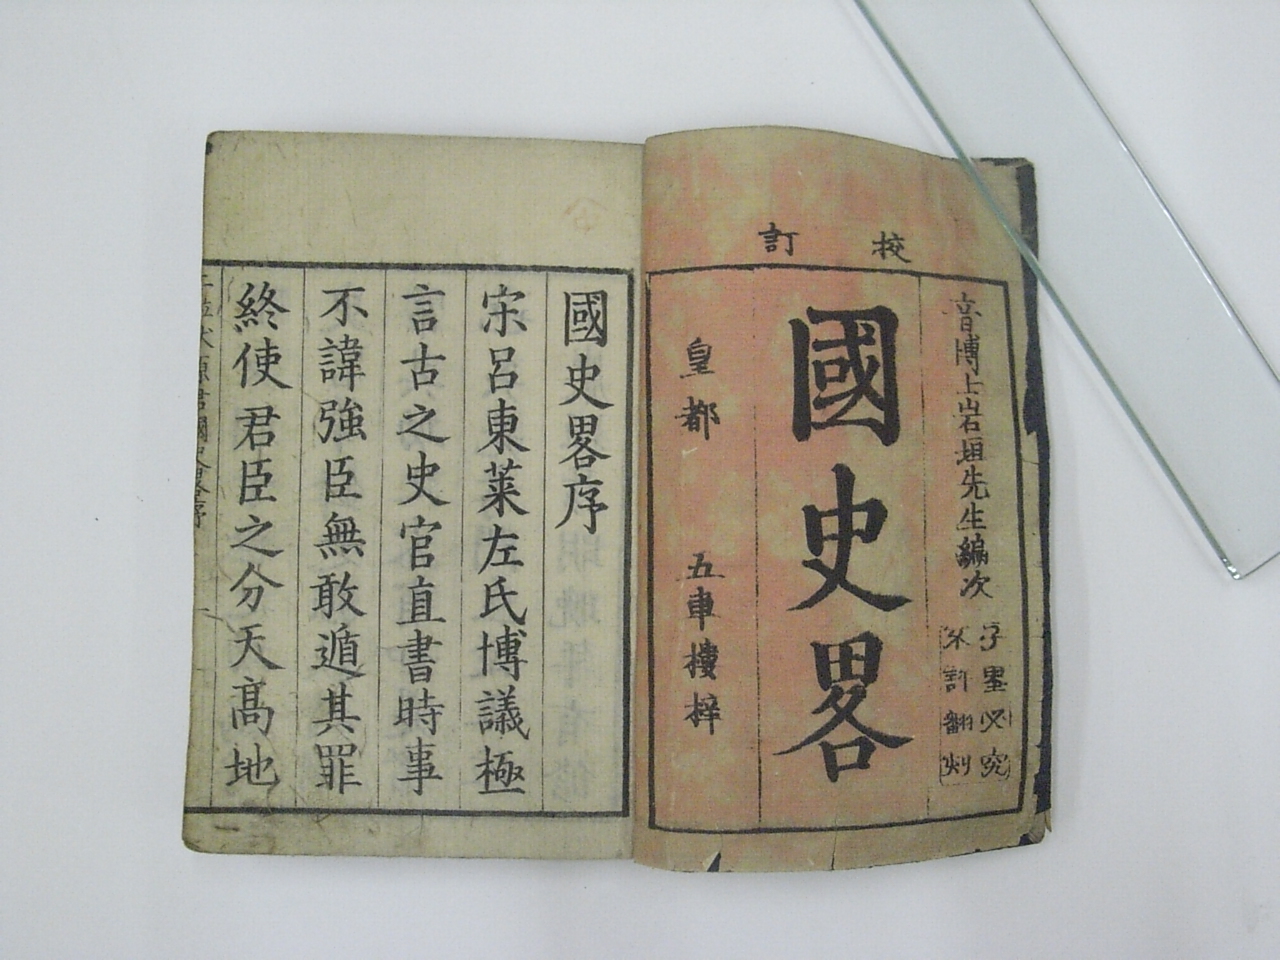 校訂
音博士岩垣先生編次
不許翻刻
國史畧
皇都 五車樓梓
國史畧序
宋呂東萊左氏博議極
言古之史官直書時事
不諱強臣無敢遁其罪
終使君臣之分天高地